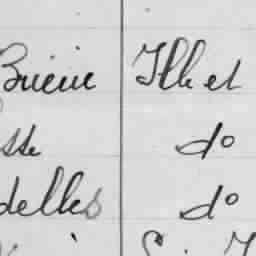 Brieuc Ille et
sse do
delles do